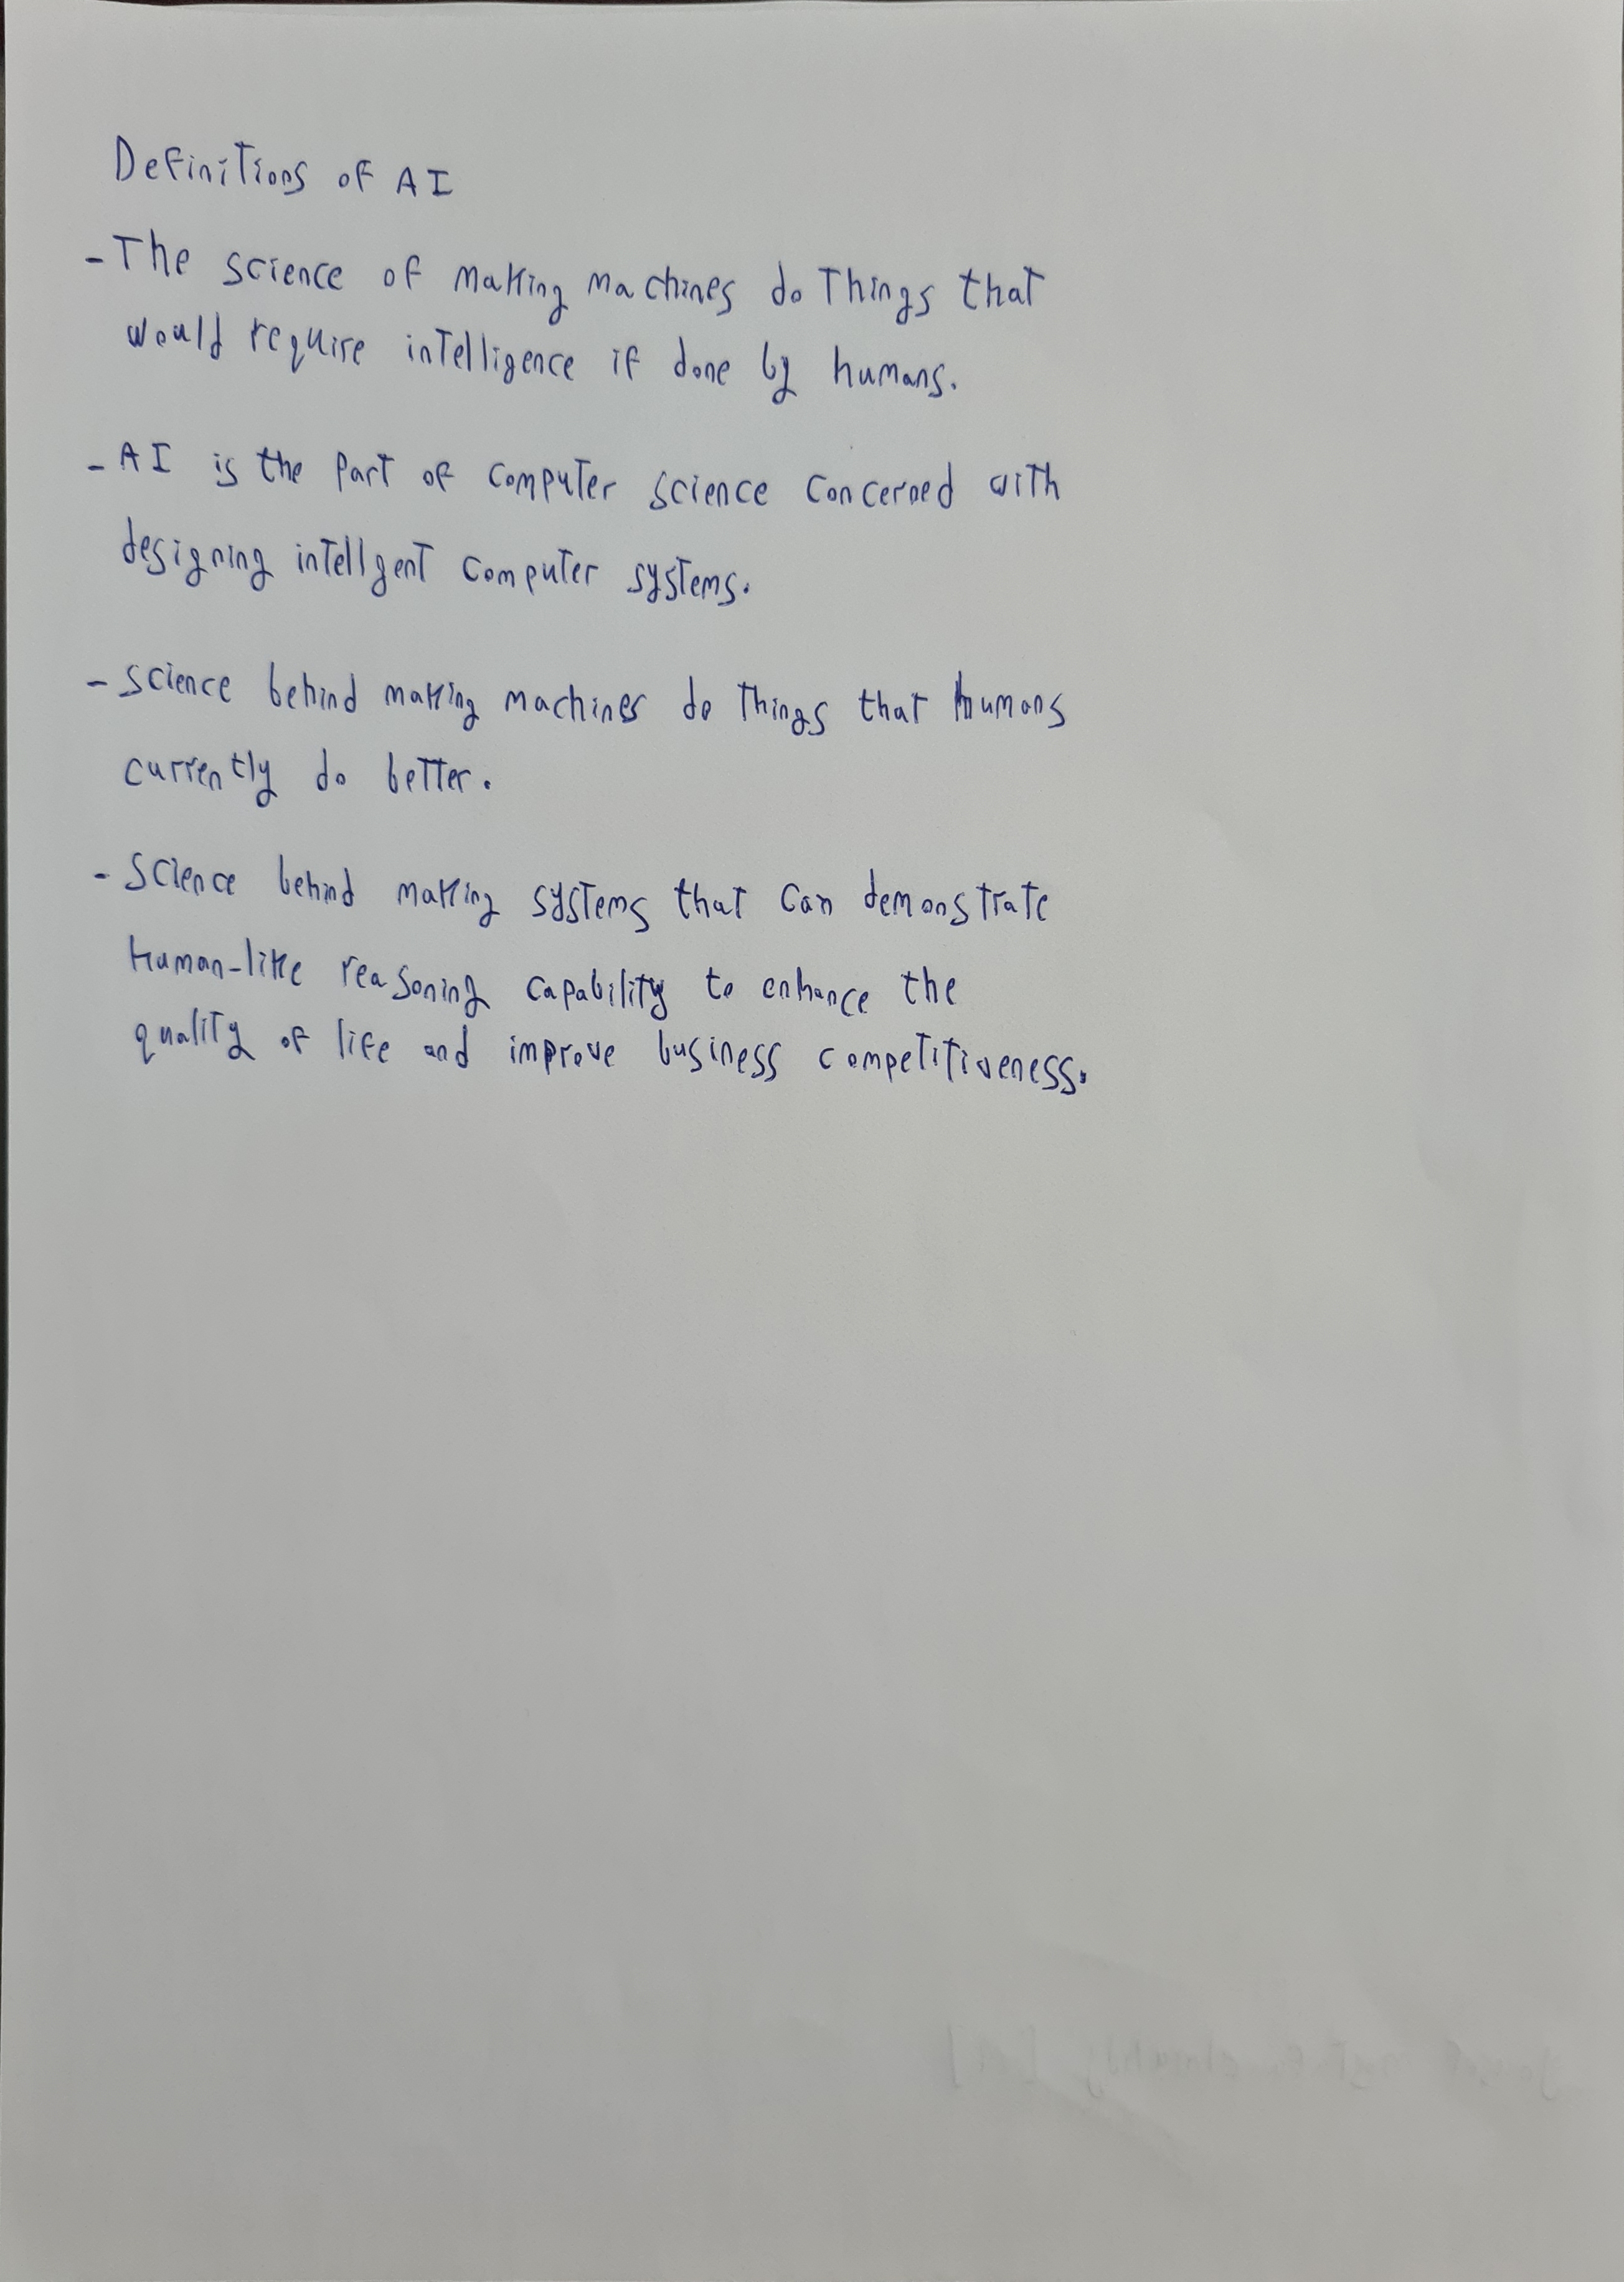 Definitions of AI
- The science of making machines do Things that
would require intelligence if done by humans.
- AI is the part of computer science concerned with
designing intellgent computer systems.
- science behind making machines do things that humans
currently do better.
- Science behind making systems that can demonstrate
human-like reasoning capability to enhance the
quality of life and improve business competitiveness.